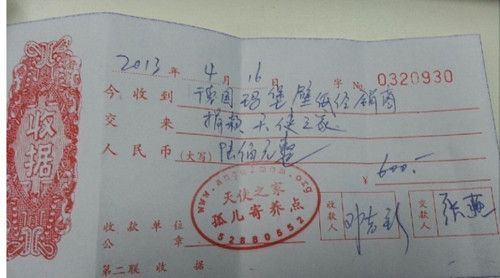 收据
2013 年 4 月 16 日 字 No 0320930
今收到 德国玛堡壁纸经销商
交来 捐款天使之家
人民币(大写) 陆佰元整
¥ 600.-
www.angelmom.org
天使之家
孤儿寄养点
52880652
收款单位
公章
收款人 邓志新
交款人 张燕
第二联 收据